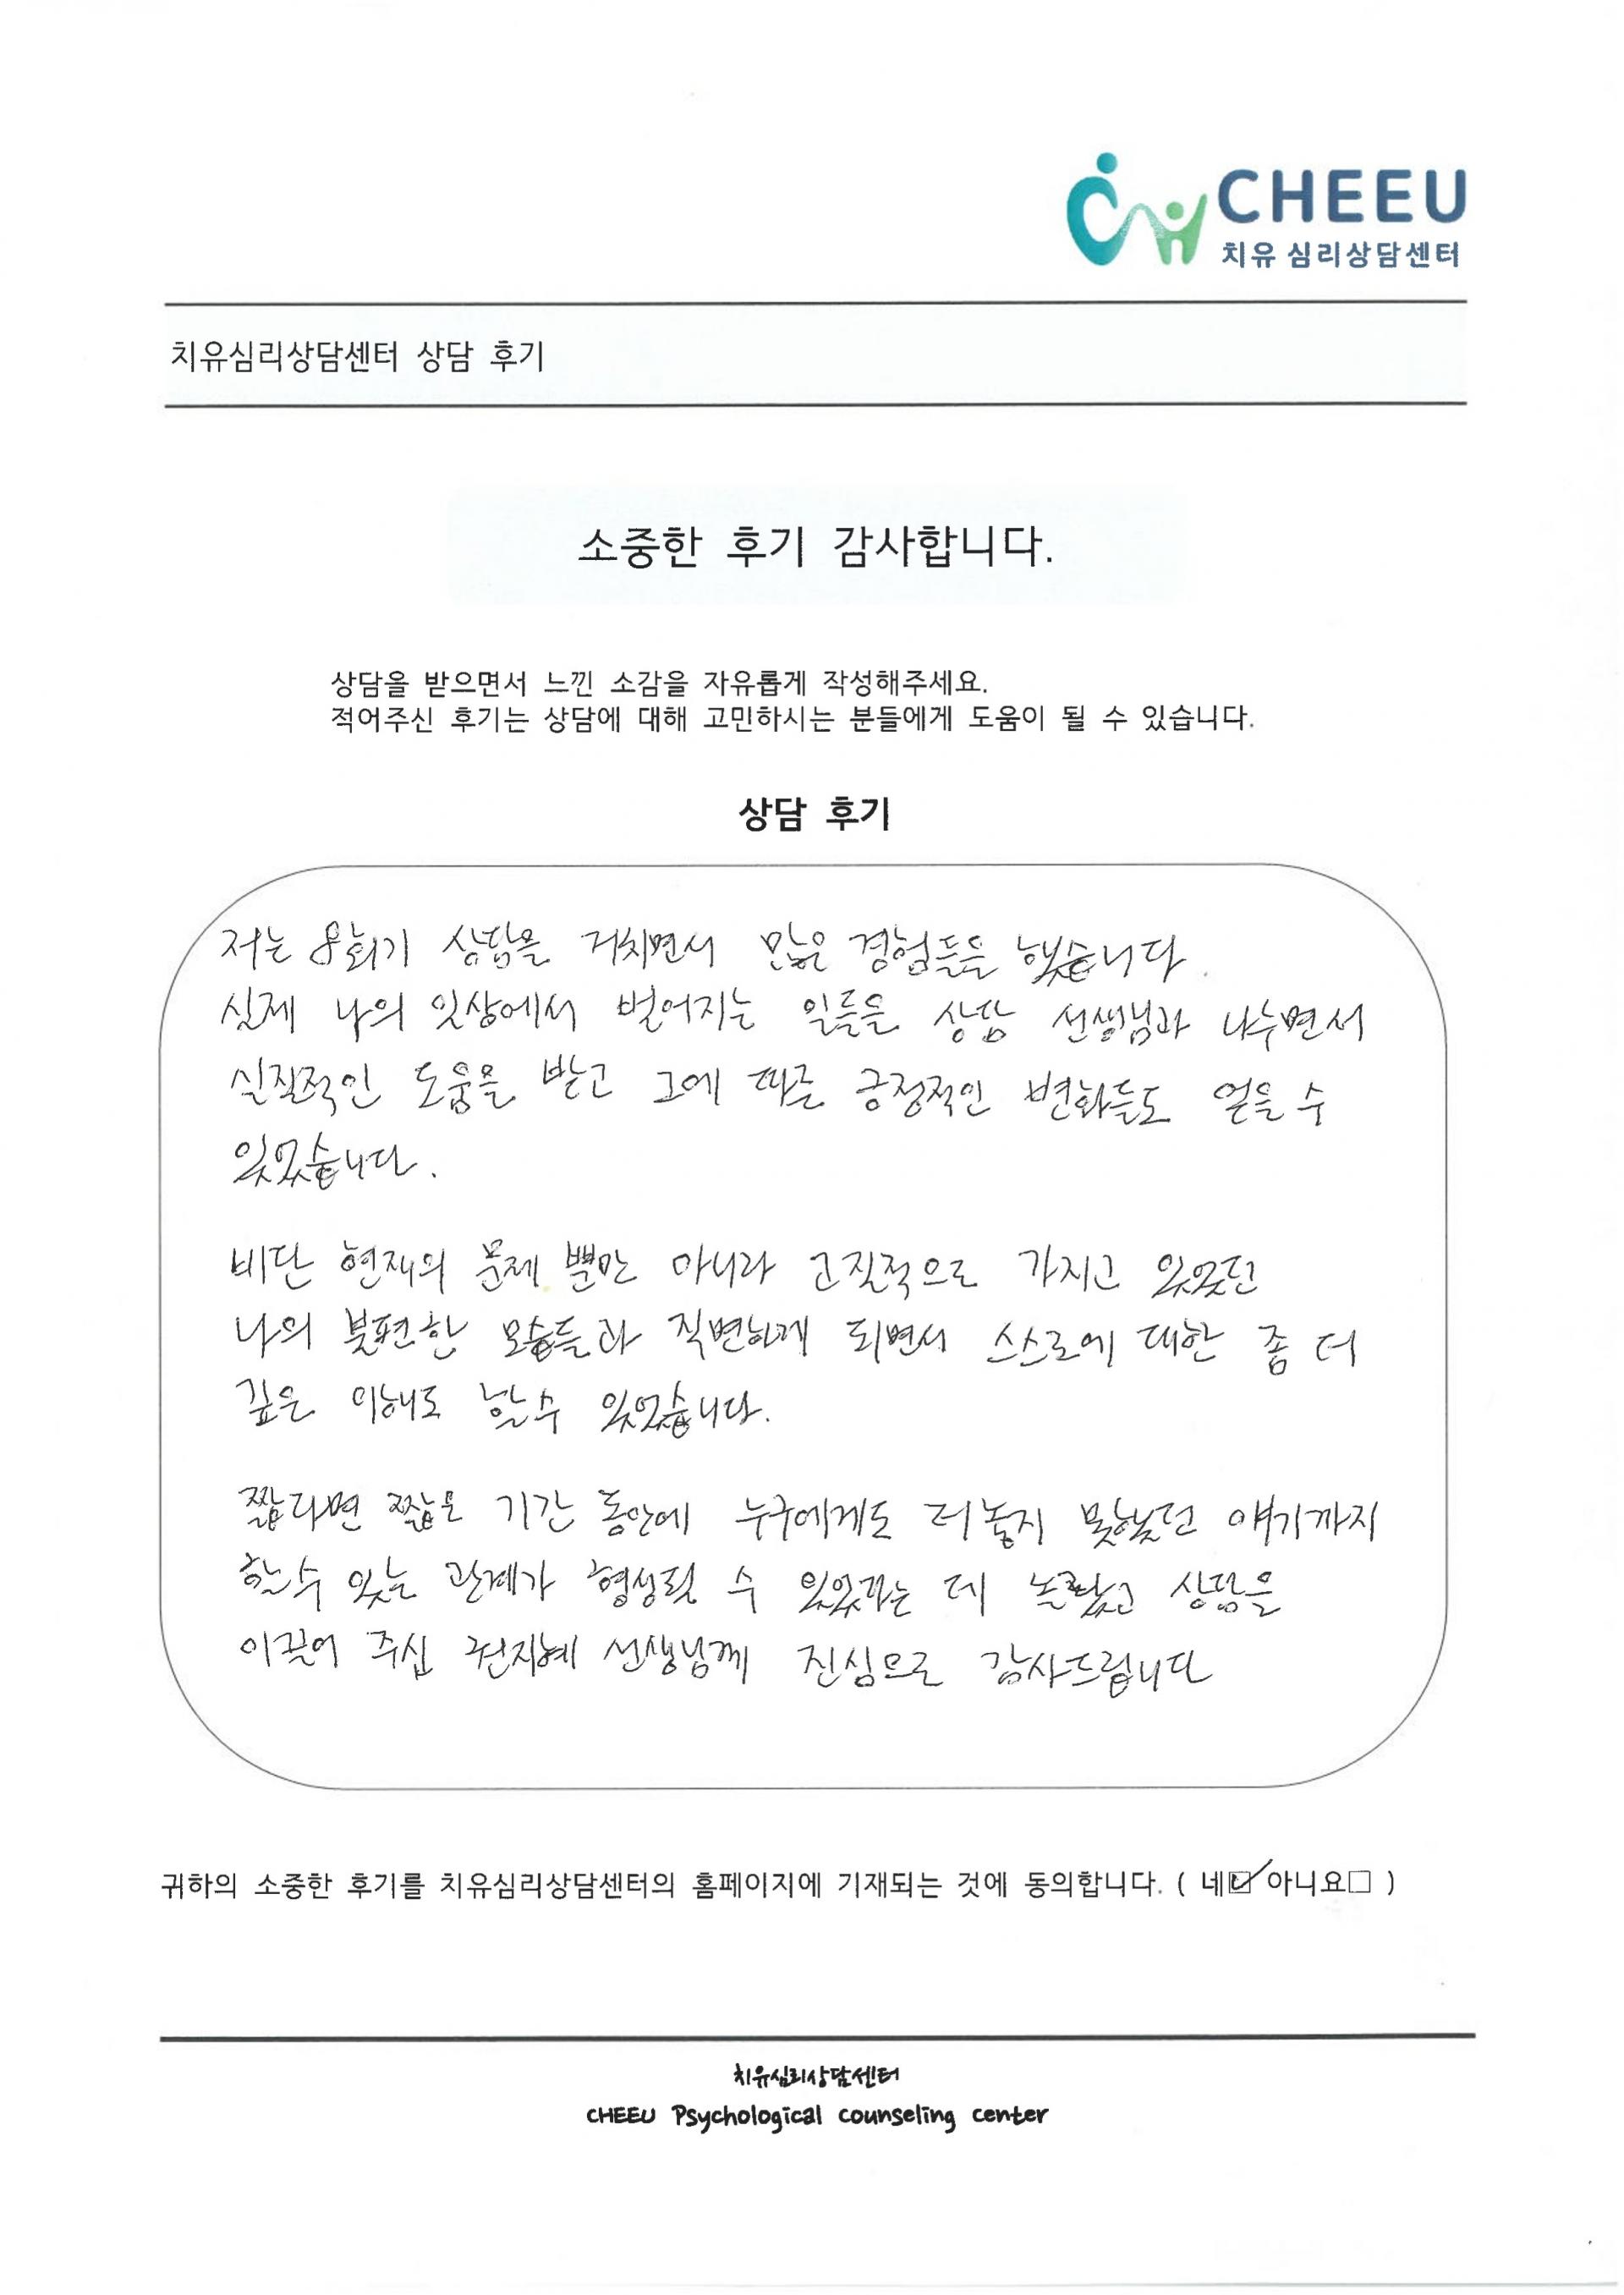 CHEEU
치유 심리상담센터
치유심리상담센터 상담 후기
소중한 후기 감사합니다.
상담을 받으면서 느낀 소감을 자유롭게 작성해주세요.
적어주신 후기는 상담에 대해 고민하시는 분들에게 도움이 될 수 있습니다.
상담 후기
저는 8회기 상담을 거치면서 많은 경험들을 했습니다.
실제 나의 일상에서 벌어지는 일들을 상담 선생님과 나누면서
실질적인 도움을 받고 그에 따른 긍정적인 변화들도 얻을 수
있었습니다.
비단 현재의 문제 뿐만 아니라 고질적으로 가지고 있었던
나의 불편한 모습들과 직면하게 되면서 스스로에 대한 좀 더
깊은 이해도 할 수 있었습니다.
짧다면 짧은 기간 동안에 누구에게도 터놓지 못했던 얘기까지
할 수 있는 관계가 형성될 수 있었다는 데 놀랐고 상담을
이끌어 주신 권지혜 선생님께 진심으로 감사드립니다
귀하의 소중한 후기를 치유심리상담센터의 홈페이지에 기재되는 것에 동의합니다. ( 네☑ 아니요□ )
치유심리상담센터
CHEEU Psychological counseling center